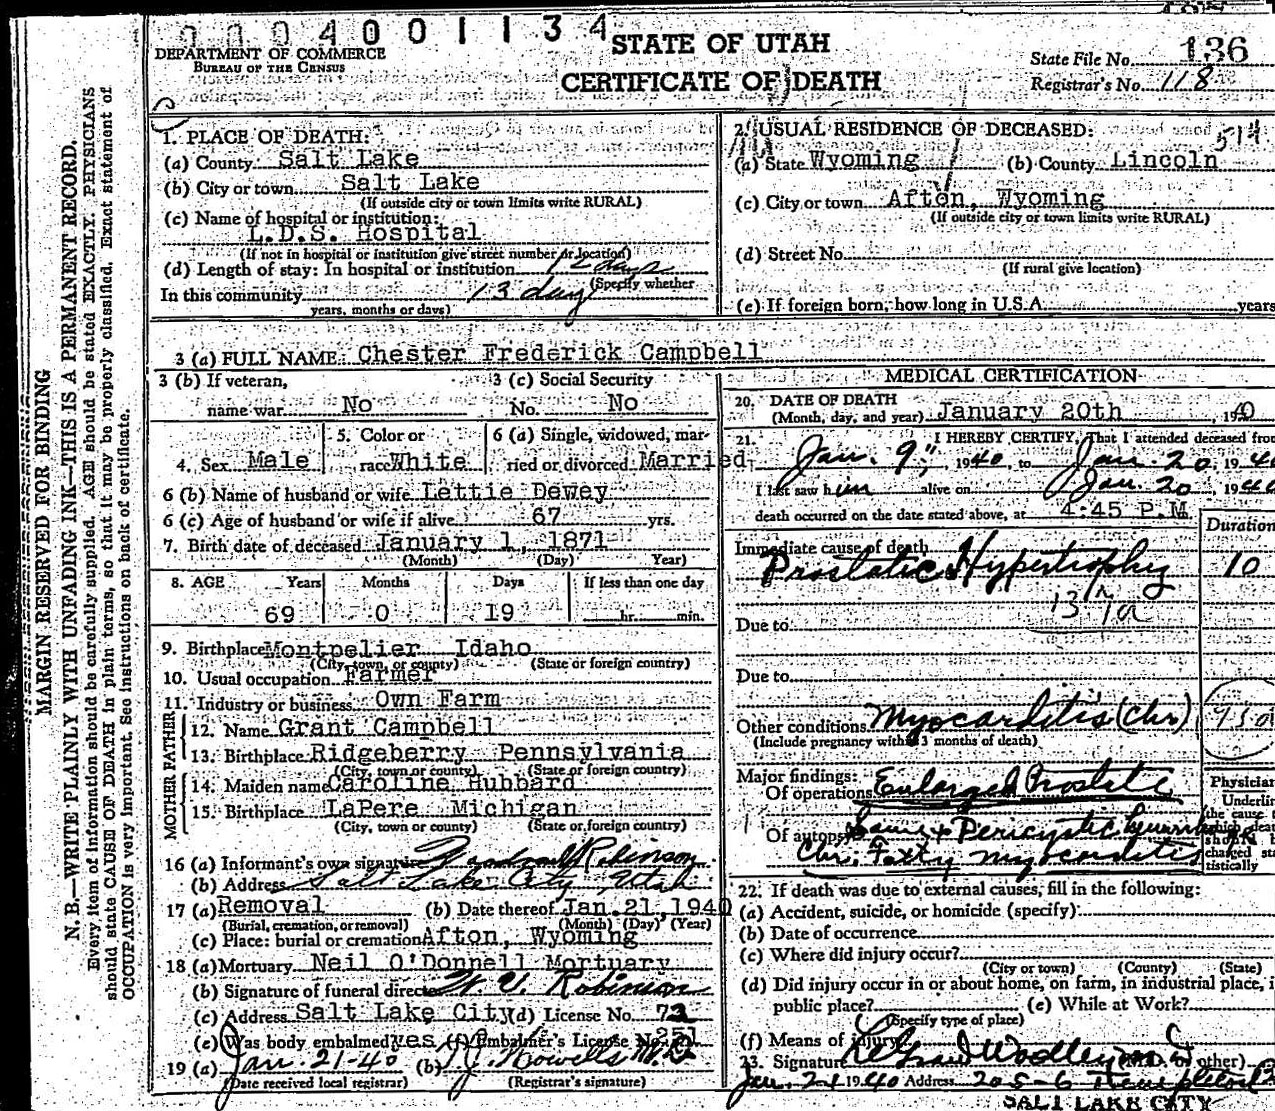 0004001134
DEPARTMENT OF COMMERCE
BUREAU OF THE CENSUS
STATE OF UTAH
CERTIFICATE OF DEATH
State File No. 136
Registrar's No. 118
1. PLACE OF DEATH:
(a) County Salt Lake
(b) City or town Salt Lake
(If outside city or town limits write RURAL)
(c) Name of hospital or institution:
L.D.S. Hospital
(If not in hospital or institution give street number or location)
(d) Length of stay: In hospital or institution 12 days
(Specify whether
In this community 13 days
years, months or days)
2. USUAL RESIDENCE OF DECEASED: 514
(a) State Wyoming (b) County Lincoln
(c) City or town Afton, Wyoming
(If outside city or town limits write RURAL)
(d) Street No.
(If rural give location)
(e) If foreign born, how long in U.S.A. years
3 (a) FULL NAME: Chester Frederick Campbell
3 (b) If veteran, 3 (c) Social Security
name war No No. No
4. Sex Male 5. Color or race White 6 (a) Single, widowed, married or divorced Married
6 (b) Name of husband or wife Lettie Dewey
6 (c) Age of husband or wife if alive 67 yrs.
7. Birth date of deceased January 1, 1871
(Month) (Day) Year)
8. AGE Years Months Days If less than one day
69 0 19 hr. min.
9. Birthplace Montpelier Idaho
(City, town, or county) (State or foreign country)
10. Usual occupation Farmer
11. Industry or business Own Farm
FATHER
12. Name Grant Campbell
13. Birthplace Ridgeberry Pennsylvania
(City, town or county) (State or foreign country)
MOTHER
14. Maiden name Caroline Hubbard
15. Birthplace LaPere Michigan
(City, town or county) (State or foreign country)
16 (a) Informant's own signature Robinson
(b) Address Salt Lake City, Utah
17 (a) Removal (b) Date thereof Jan. 21, 1940
(Burial, cremation, or removal) (Month) (Day) (Year)
(c) Place: burial or cremation Afton, Wyoming
18 (a) Mortuary Neil O'Donnell Mortuary
(b) Signature of funeral director Robinson
(c) Address Salt Lake City (d) License No. 72
(e) Was body embalmed yes (f) Embalmer's License No. 251
19 (a) Jan. 21-40 (b)
(Date received local registrar) (Registrar's signature)
MEDICAL CERTIFICATION
20. DATE OF DEATH
(Month, day, and year) January 20th, 1940
21. I HEREBY CERTIFY, That I attended deceased from
Jan. 9", 1940, to Jan. 20, 1940
I last saw him alive on Jan. 20, 1940
death occurred on the date stated above, at 4:45 P.M.
Duration
Immediate cause of death
Prostatic Hypertrophy 10
137a
Due to
Due to
Other conditions Myocarditis (Chr)
(Include pregnancy within 3 months of death)
Major findings:
Of operations Enlarged Prostate
Of autopsy Same + Pericystic
Chr. Fatty Myocarditis
Physician
Underline
the cause
which death
should be
charged
tistically
22. If death was due to external causes, fill in the following:
(a) Accident, suicide, or homicide (specify)
(b) Date of occurrence
(c) Where did injury occur?
(City or town) (County) (State)
(d) Did injury occur in or about home, on farm, in industrial place, i
public place? (e) While at Work?
(Specify type of place)
(f) Means of injury
23. Signature (M.D. or other)
Jan. 21 1940 Address 205-6
SALT LAKE CITY
MARGIN RESERVED FOR BINDING
N. B.—WRITE PLAINLY WITH UNFADING INK—THIS IS A PERMANENT RECORD.
Every item of information should be carefully supplied. AGE should be stated EXACTLY. PHYSICIANS
should state CAUSE OF DEATH in plain terms, so that it may be properly classified. Exact statement of
OCCUPATION is very important. See instructions on back of certificate.